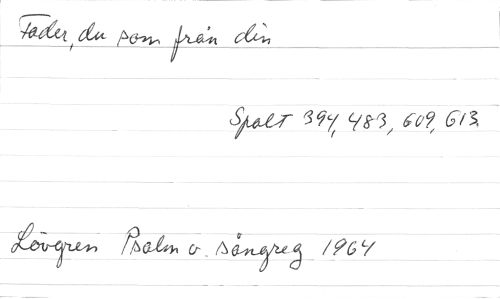 Fader, du som från din
Spalt 394, 483, 609, 613
Lövgren Psalm o. sångreg 1964